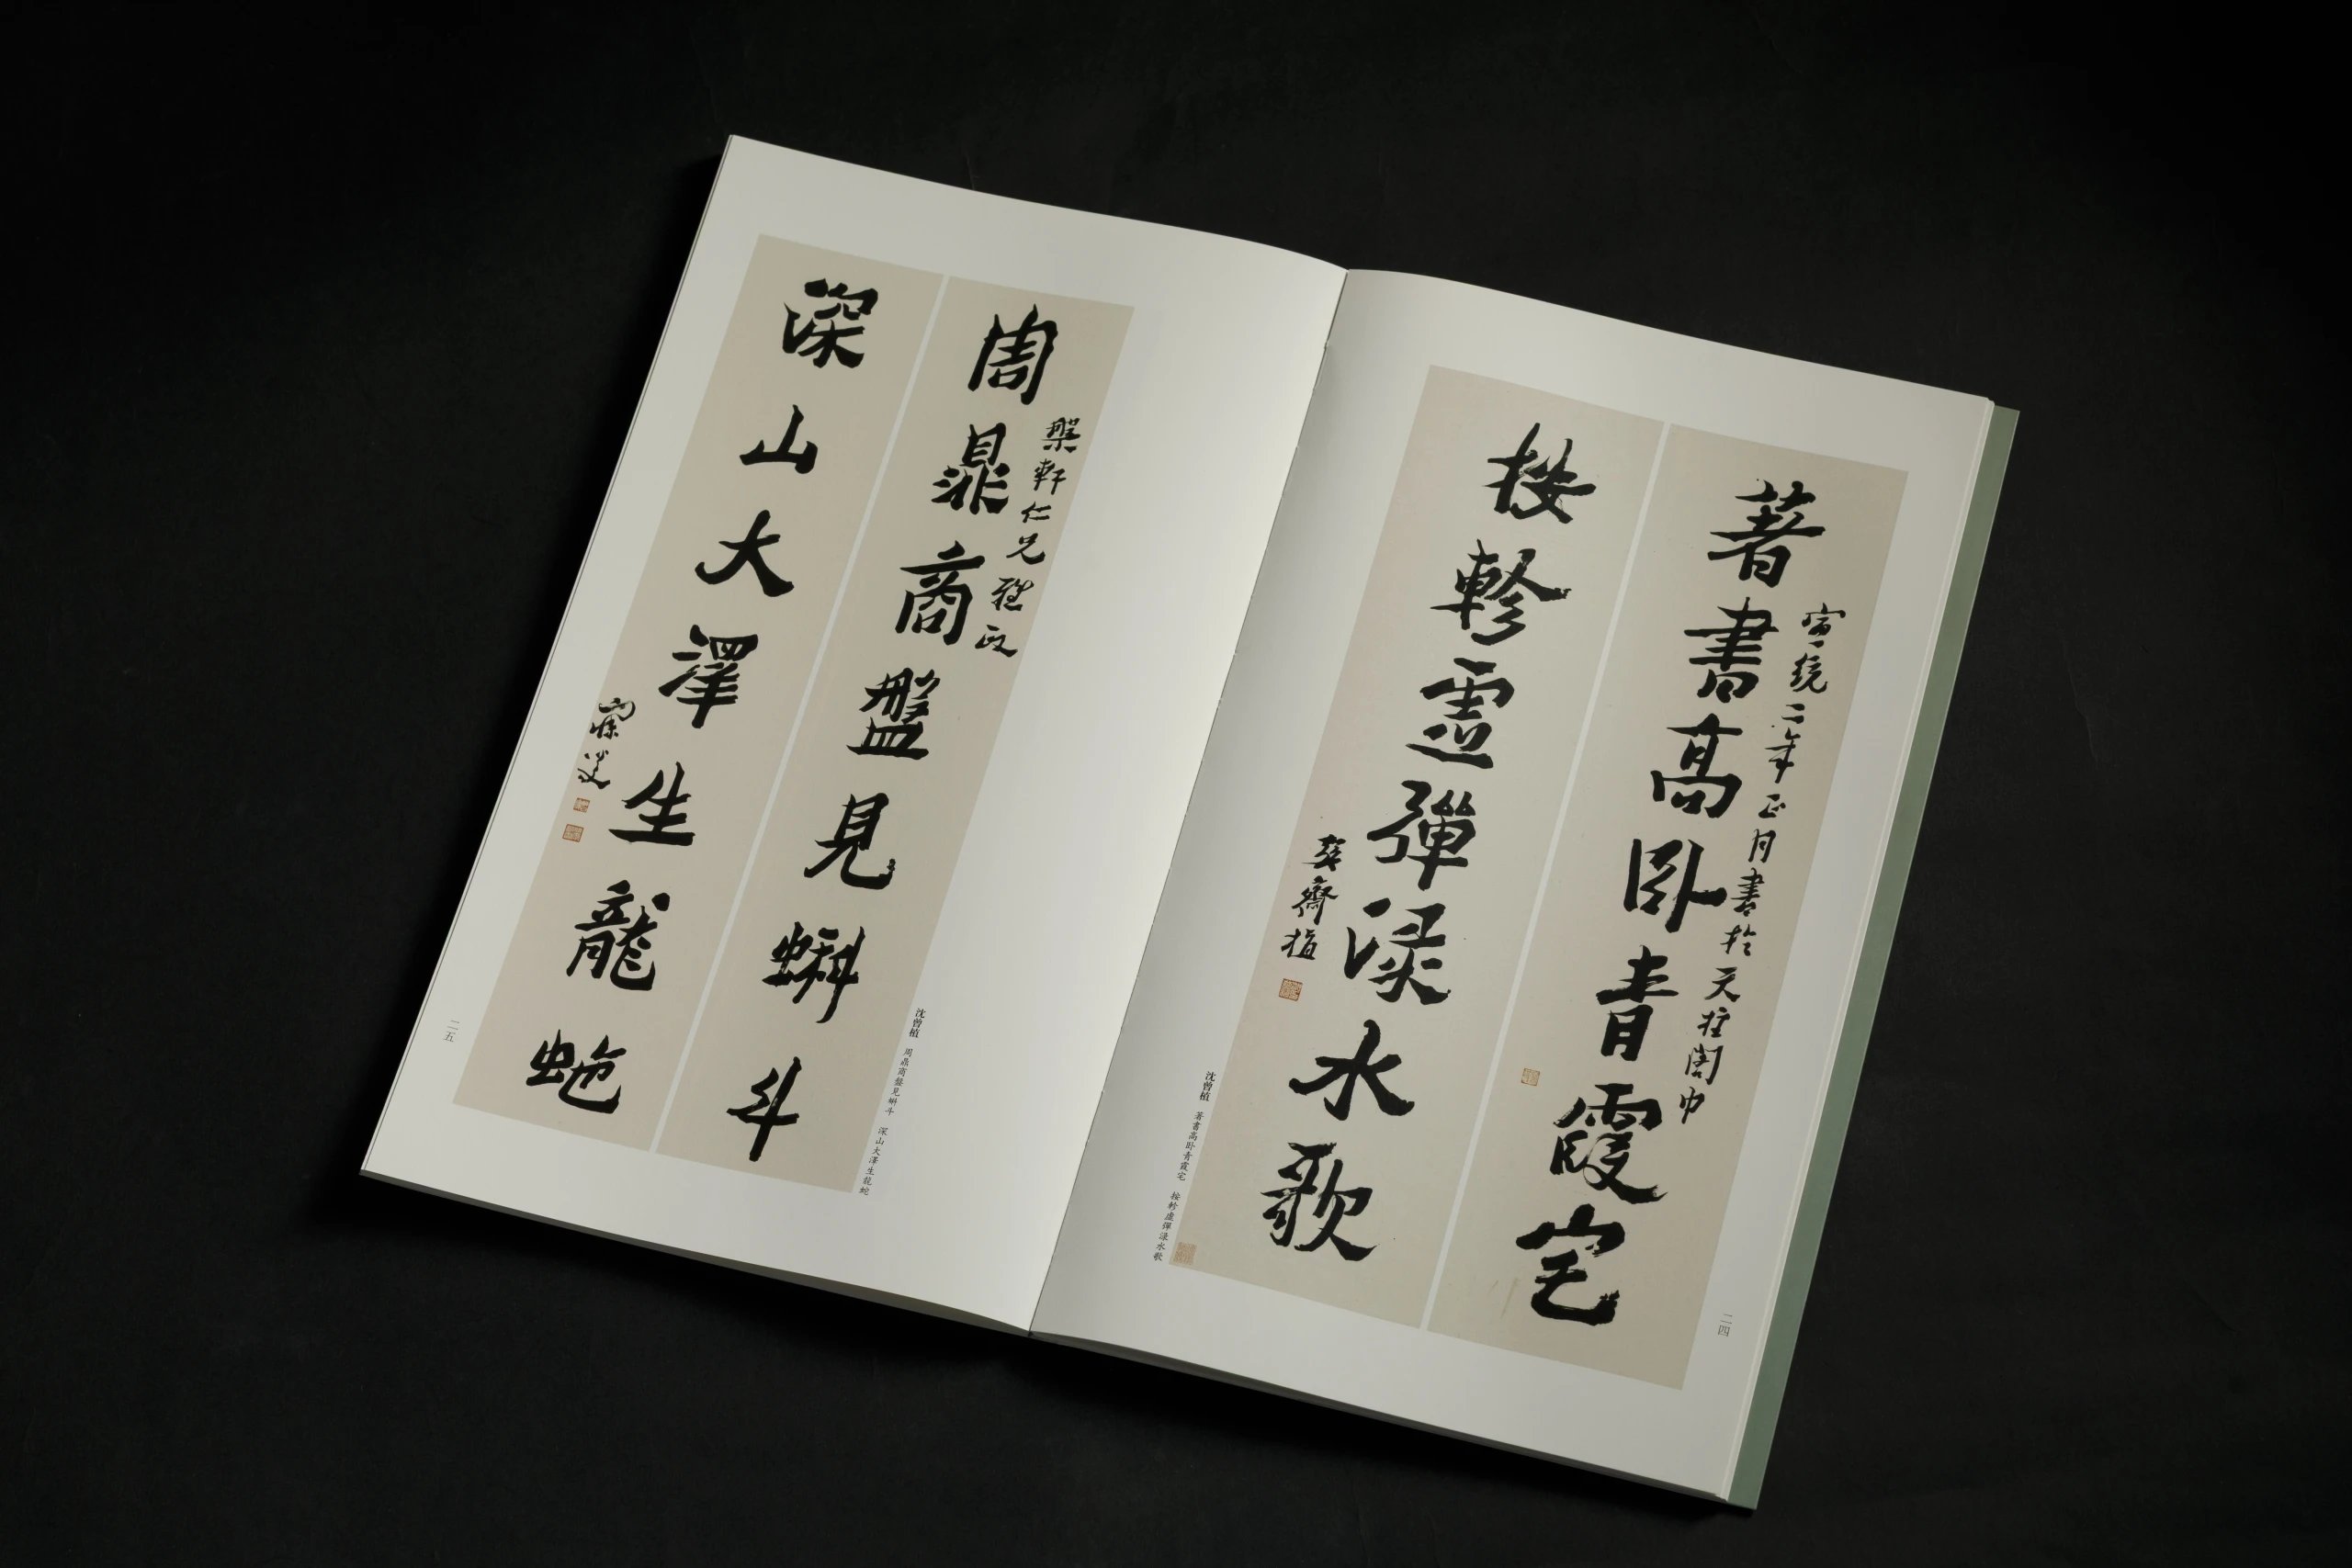 著書高卧青霞宅
宣統二年正月書於天柱閣中
按軫虛彈淥水歌
巽齋植
沈曾植 著書高卧青霞宅 按軫虛彈淥水歌
二四
周鼎商盤見蝌斗
槃軒仁兄雅政
深山大澤生龍蛇
寐叟
沈曾植 周鼎商盤見蝌斗 深山大澤生龍蛇
二五